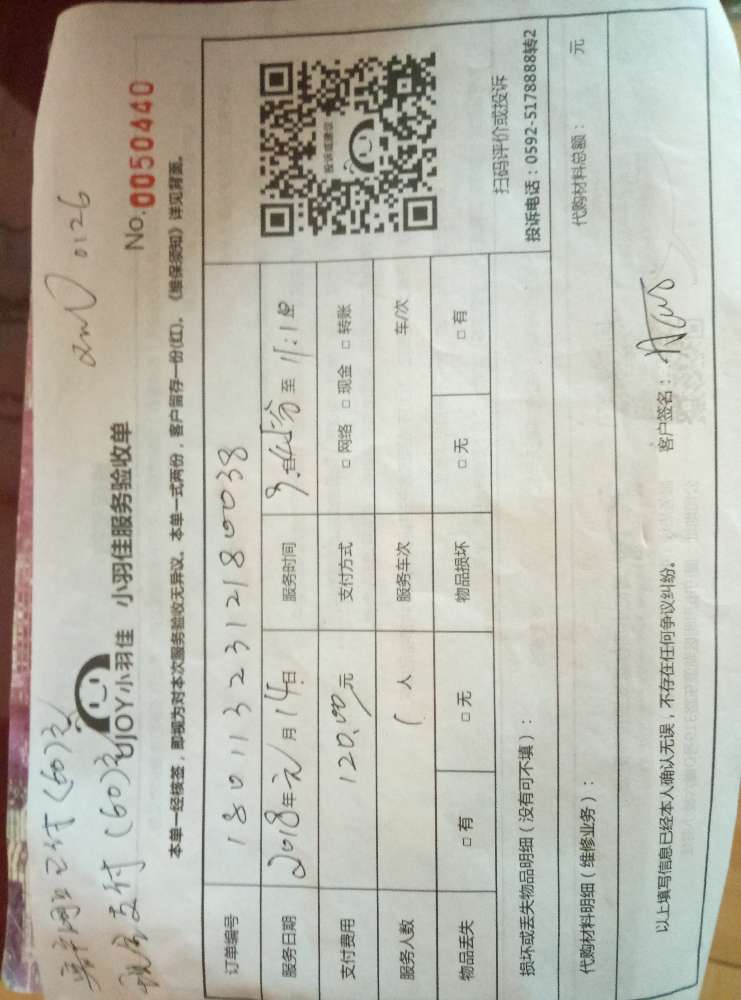 网上已付(60)元
现金支付(60)元
0126
UJOY小羽佳 小羽佳服务验收单
No.0050440
本单一经核签，即视为对本次服务验收无异议。本单一式两份，客户留存一份(红)。《维保须知》详见背面。
订单编号 18011323121800038
服务日期 2018年元月14日 服务时间 至11:1
支付费用 120.00元 支付方式 □网络 □现金 □转账
服务人数 1人 服务车次 车/次
物品丢失 □有 □无 物品损坏 □无 □有
投诉或建议
扫码评价或投诉
投诉电话：0592-5178888转2
损坏或丢失物品明细（没有可不填）：
代购材料明细（维修业务）： 代购材料总额： 元
以上填写信息已经本人确认无误，不存在任何争议纠纷。 客户签名：